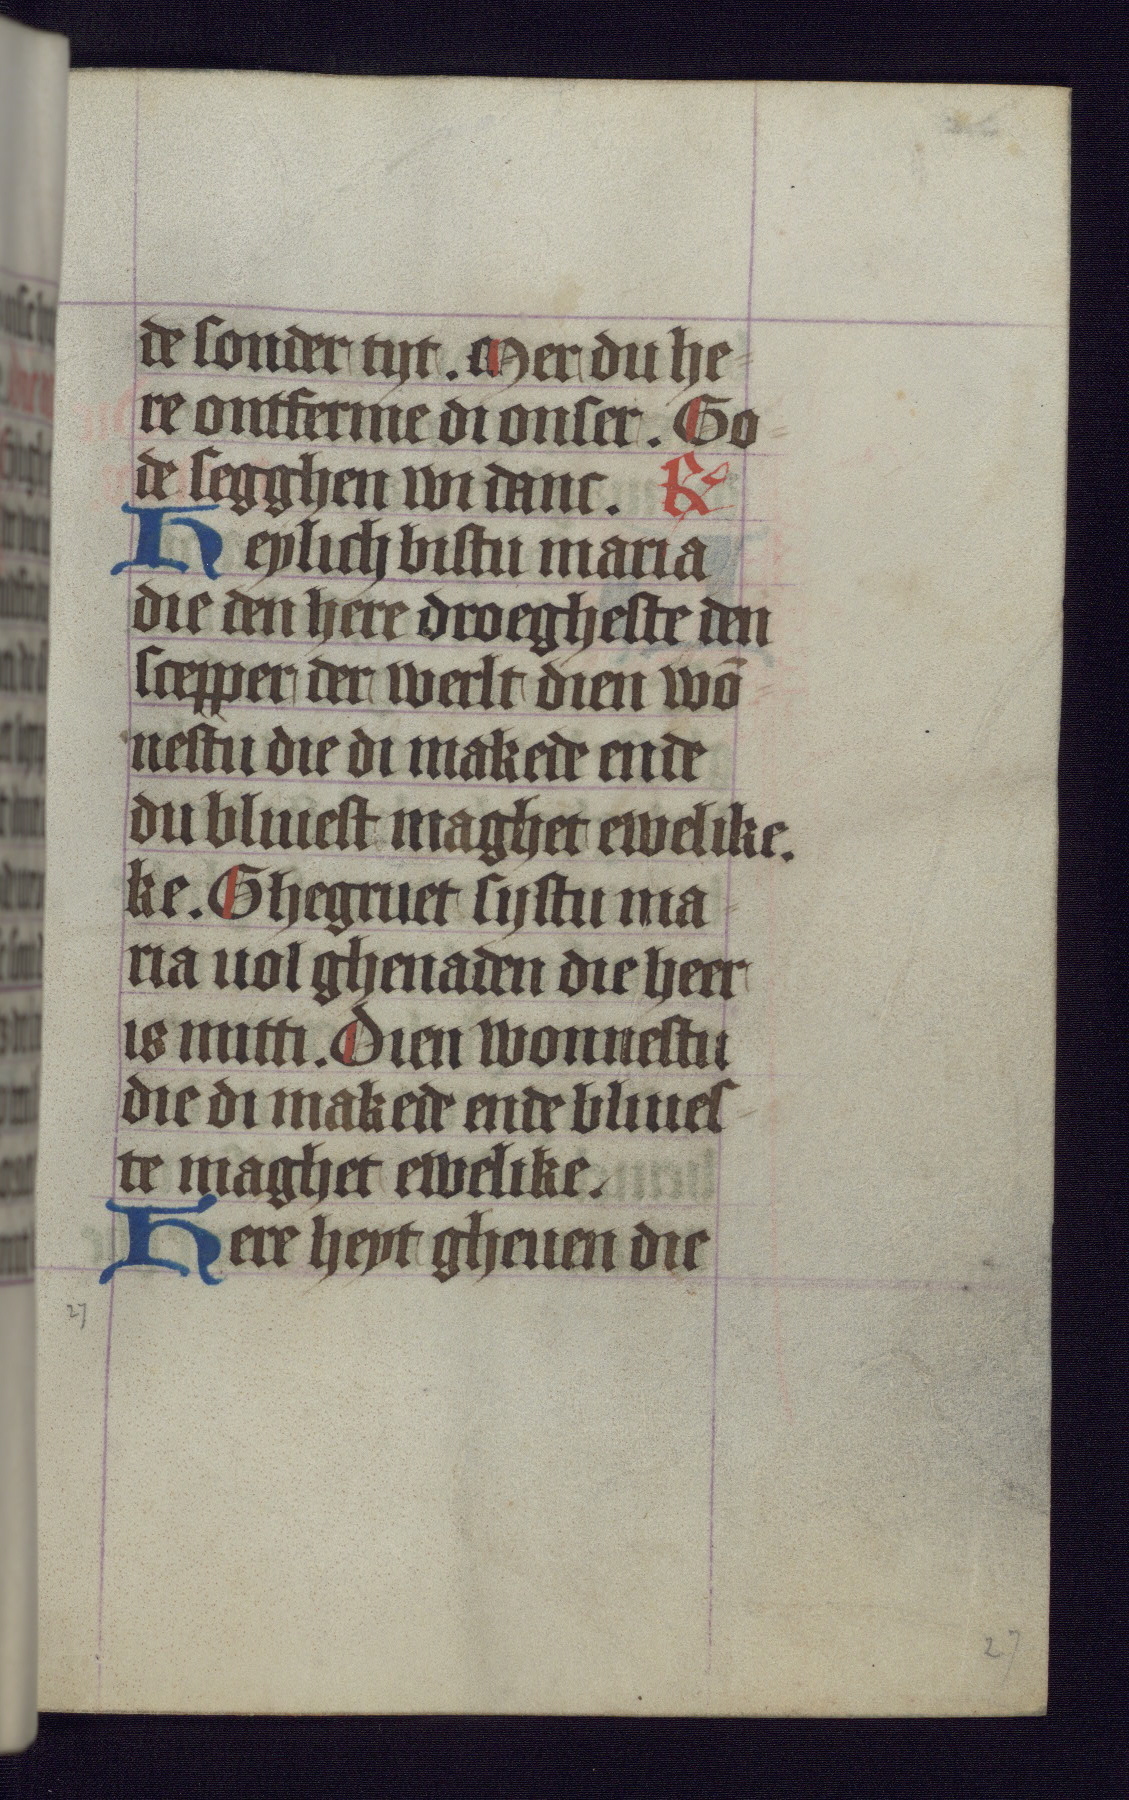 de sonder tijt. Mer du he-
re ontferme di onser. Go-
de segghen wi danc. R
Heylich bistu maria
die den here droegheste den
scepper der werlt dien wō-
nestu die di makede ende
du bliuest maghet ewelike.
ke. Ghegruet sijstu ma-
ria uol ghenaden die heer
is mitti. Dien wonnestu
die di makede ende bliues-
te maghet ewelike.
Here heyt gheuen die
27
27